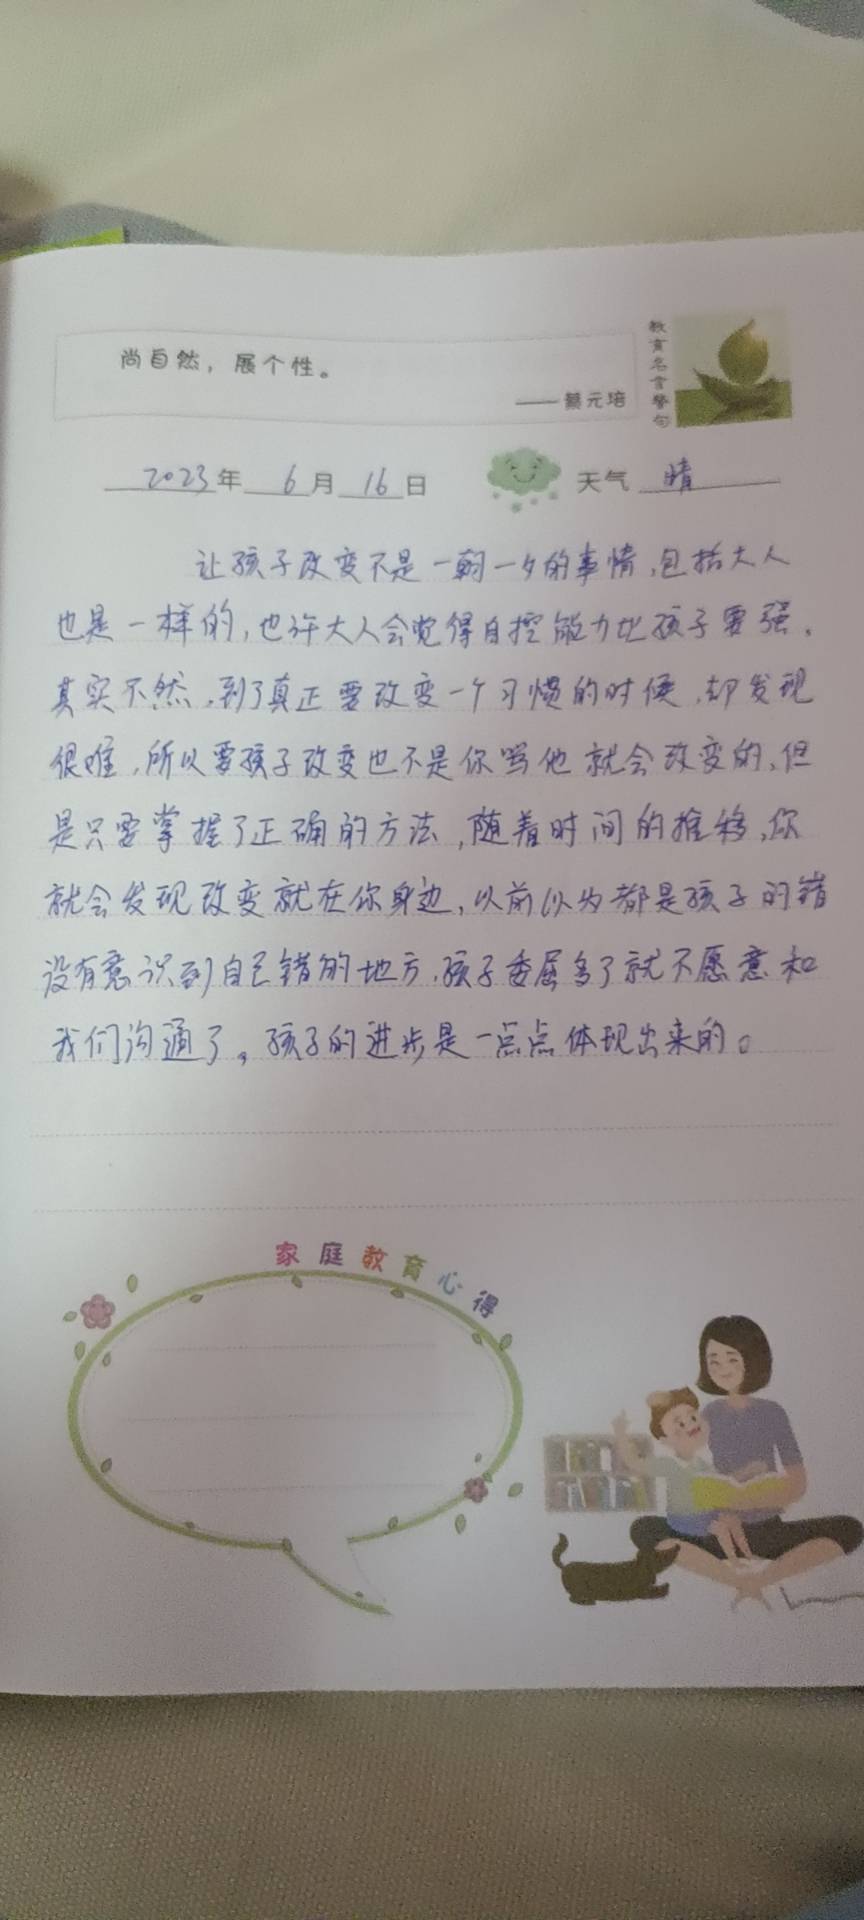 尚自然，展个性。
——蔡元培
教育名言警句
2023年6月16日 天气 晴
让孩子改变不是一朝一夕的事情，包括大人
也是一样的，也许大人会觉得自控能力比孩子要强。
其实不然，到了真正要改变一个习惯的时候，却发现
很难，所以要孩子改变也不是你骂他就会改变的，但
是只要掌握了正确的方法，随着时间的推移，你
就会发现改变就在你身边，以前以为都是孩子的错
没有意识到自己错的地方，孩子委屈多了就不愿意和
我们沟通了。孩子的进步是一点点体现出来的。
家庭教育心得